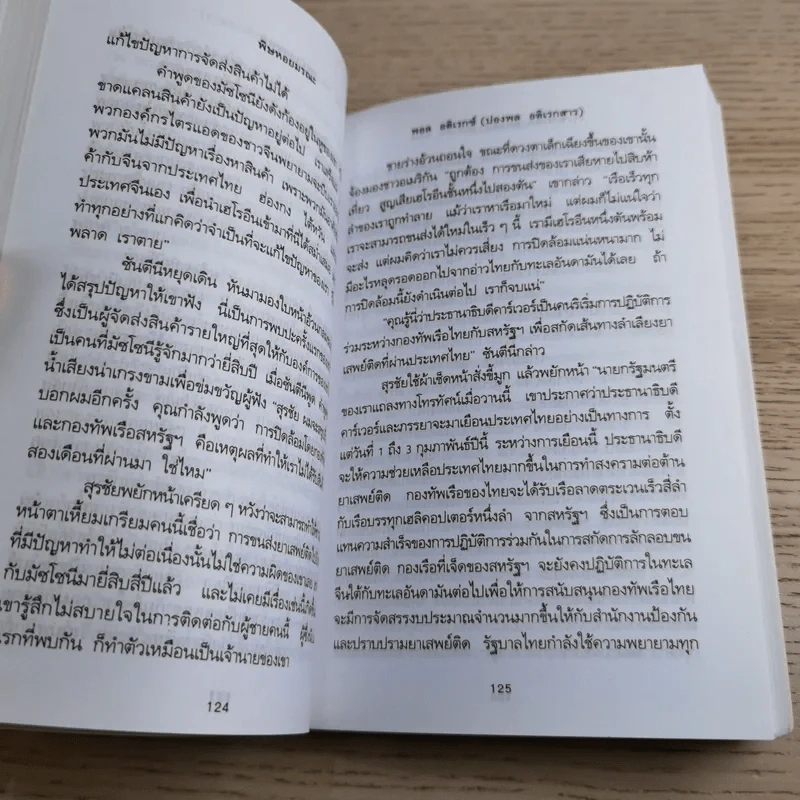 พิษหอยมรณะ
แก้ไขปัญหาการจัดส่งสินค้าไม่ได้
คำพูดของมัชโซนียังดังก้องอยู่ใน
ขาดแคลนสินค้ายังเป็นปัญหาอยู่ต่อไป
พวกองค์กรไตรแอดของชาวจีนพยายามจะ
พวกมันไม่มีปัญหาเรื่องหาสินค้า เพราะพวก
ค้ากับจีนจากประเทศไทย ฮ่องกง ไต้หวัน
ประเทศจีนเอง เพื่อนำเฮโรอีนเข้ามาที่นี่ได้
ทำทุกอย่างที่แกคิดว่าจำเป็นที่จะแก้ไขปัญหาของเรา
พลาด เราตาย"
ซันตีนีหยุดเดิน หันมามองใบหน้าอ้วน
ได้สรุปปัญหาให้เขาฟัง นี่เป็นการพบปะครั้งแรก
ซึ่งเป็นผู้จัดส่งสินค้ารายใหญ่ที่สุดให้กับองค์การ
เป็นคนที่มัชโซนีรู้จักมากว่ายี่สิบปี เมื่อซันตีนีพูด
น้ำเสียงน่าเกรงขามเพื่อข่มขวัญผู้ฟัง "สุรชัย ผม
บอกผมอีกครั้ง คุณกำลังพูดว่า การปิดล้อมโดย
และกองทัพเรือสหรัฐฯ คือเหตุผลที่ทำให้เราไม่ได้
สองเดือนที่ผ่านมา ใช่ไหม"
สุรชัยพยักหน้าเครียด ๆ หวังว่าจะสามารถทำให้
หน้าตาเหี้ยมเกรียมคนนี้เชื่อว่า การขนส่งยาเสพย์ติด
ที่มีปัญหาทำให้ไม่ต่อเนื่องนั้นไม่ใช่ความผิดของเขา
กับมัชโซนีมายี่สิบสี่ปีแล้ว และไม่เคยมีเรื่องเช่นนี้
เขารู้สึกไม่สบายใจในการติดต่อกับผู้ชายคนนี้
แรกที่พบกัน ก็ทำตัวเหมือนเป็นเจ้านายของเขา
124
พอล อดิเรกซ์ (ปองพล อดิเรกสาร)
ชายร่างอ้วนถอนใจ ขณะที่ดวงตาเล็กเฉียงขึ้นของเขานั้น
จ้องมองชาวอเมริกัน "ถูกต้อง การขนส่งของเราเสียหายไปสิบห้า
เที่ยว สูญเสียเฮโรอีนชั้นหนึ่งไปสองตัน" เขากล่าว "เรือเร็วทุก
ลำของเราถูกทำลาย แม้ว่าเราหาเรือมาใหม่ แต่ผมก็ไม่แน่ใจว่า
เราจะสามารถขนส่งได้ใหม่ในเร็ว ๆ นี้ เรามีเฮโรอีนหนึ่งตันพร้อม
จะส่ง แต่ผมคิดว่าเราไม่ควรเสี่ยง การปิดล้อมแน่นหนามาก ไม่
มีอะไรหลุดรอดออกไปจากอ่าวไทยกับทะเลอันดามันได้เลย ถ้า
การปิดล้อมนี้ยังดำเนินต่อไป เราก็จบแน่"
"คุณรู้นี่ว่าประธานาธิบดีคาร์เวอร์เป็นคนริเริ่มการปฏิบัติการ
ร่วมระหว่างกองทัพเรือไทยกับสหรัฐฯ เพื่อสกัดเส้นทางลำเลียงยา
เสพย์ติดที่ผ่านประเทศไทย" ซันตีนีกล่าว
สุรชัยใช้ผ้าเช็ดหน้าสั่งขี้มูก แล้วพยักหน้า "นายกรัฐมนตรี
ของเราแถลงทางโทรทัศน์เมื่อวานนี้ เขาประกาศว่าประธานาธิบดี
คาร์เวอร์และภรรยาจะมาเยือนประเทศไทยอย่างเป็นทางการ ตั้ง
แต่วันที่ 1 ถึง 3 กุมภาพันธ์ปีนี้ ระหว่างการเยือนนี้ ประธานาธิบดี
จะให้ความช่วยเหลือประเทศไทยมากขึ้นในการทำสงครามต่อต้าน
ยาเสพย์ติด กองทัพเรือของไทยจะได้รับเรือลาดตระเวนเร็วสี่ลำ
กับเรือบรรทุกเฮลิคอปเตอร์หนึ่งลำ จากสหรัฐฯ ซึ่งเป็นการตอบ
แทนความสำเร็จของการปฏิบัติการร่วมกันในการสกัดการลักลอบขน
ยาเสพย์ติด กองเรือที่เจ็ดของสหรัฐฯ จะยังคงปฏิบัติการในทะเล
จีนใต้กับทะเลอันดามันต่อไปเพื่อให้การสนับสนุนกองทัพเรือไทย
จะมีการจัดสรรงบประมาณจำนวนมากขึ้นให้กับสำนักงานป้องกัน
และปราบปรามยาเสพย์ติด รัฐบาลไทยกำลังใช้ความพยายามทุก
125